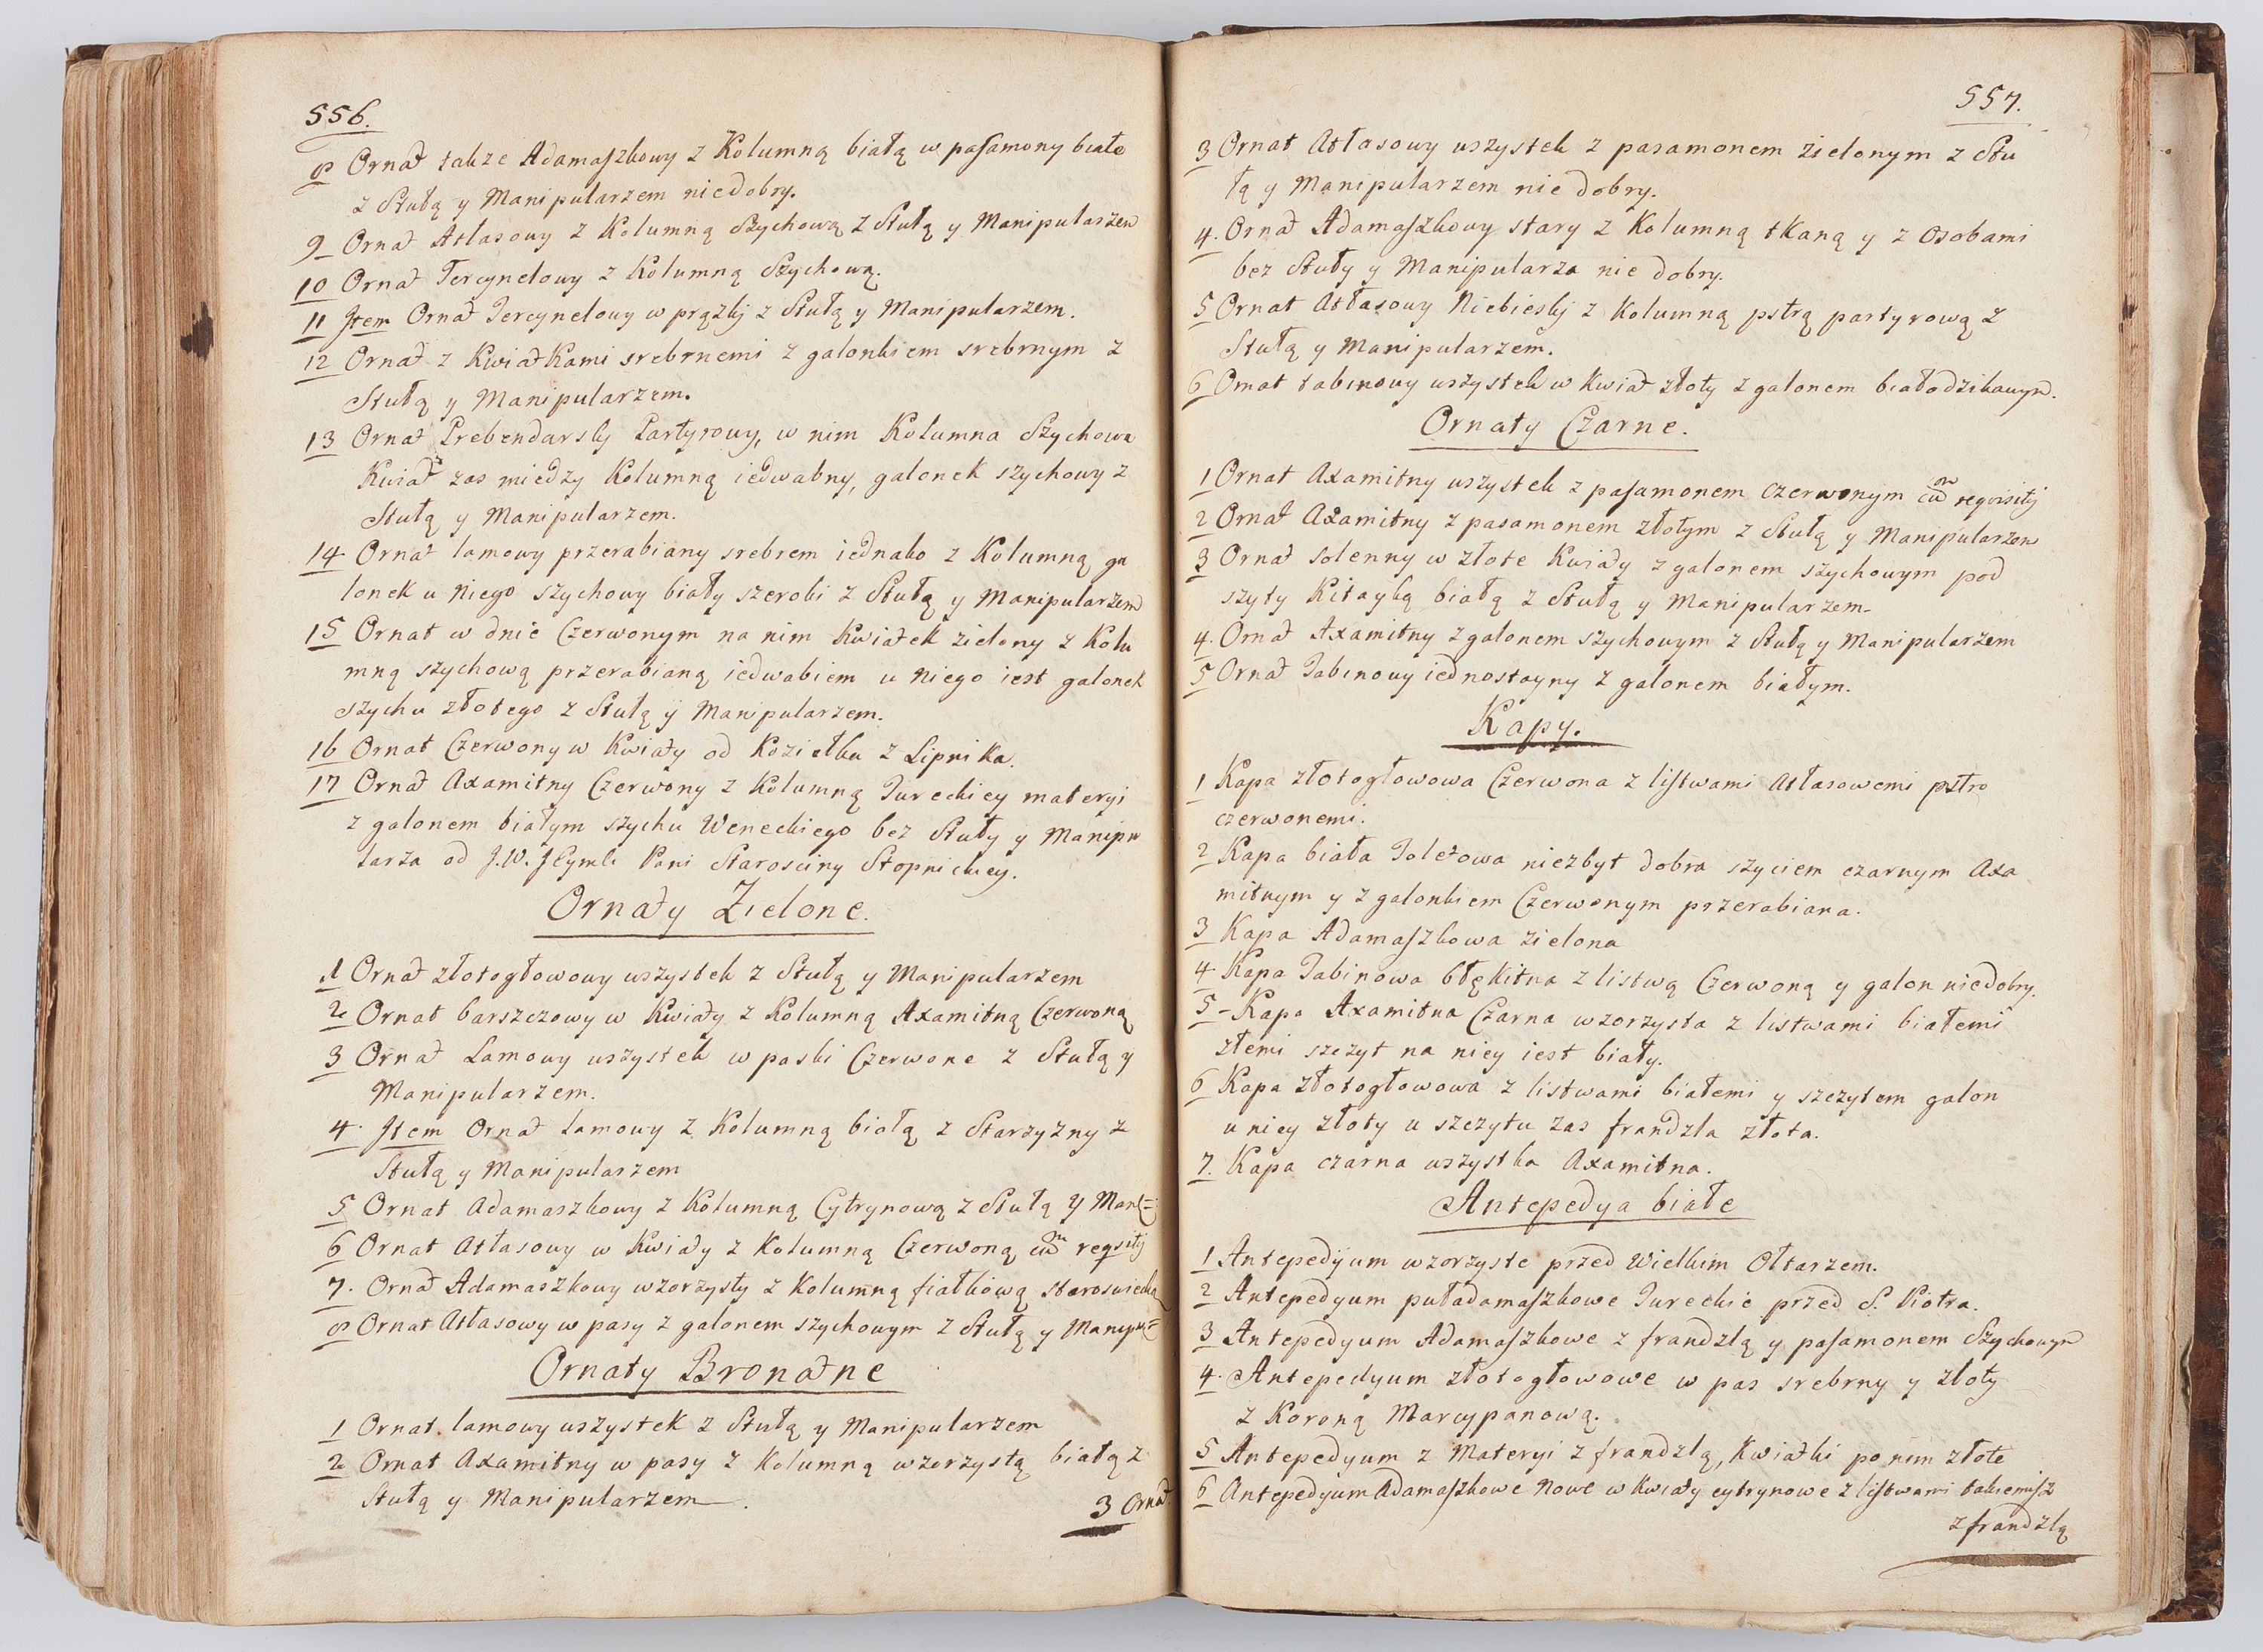 556.
8 Ornat takze Adamaszkowy z Kolumną białą w pasamony białe
z Stułą y Manipularzem niedobry.
9 Ornat Atłasowy z Kolumną Szychową z Stułą y Manipularzem
10 Ornat Tercynelowy z Kolumną Szychową.
11 Item Ornat Tercynelowy w prązkj z Stułą y Manipularzem.
12 Ornat z KwiatKami srebrnemi z galonkiem srebrnym z
Stułą y Manipularzem.
13 Ornat Prebendarskj Partyrowy, w nim Kolumna Szychowa
Kwiat zas miedzy Kolumną iedwabny, galonek szychowy z
Stułą y Manipularzem.
14 Ornat lamowy przerabiany srebrem iednako z Kolumną ga
lonek u Niego szychowy biały szeroki z Stułą y Manipularzem
15 Ornat w dnie Czerwonym na nim Kwiatek zielony z Kolu
mną szychową przerabianą iedwabiem u Niego iest galonek
szychu złotego z Stułą ÿ Manipularzem.
16 Ornat Czerwony w Kwiaty od Koziełka z Lipnika.
17 Ornat Axamitny Czerwony z Kolumną Tureckiey materyi
z galonem białym szychu Weneckiego bez Stuły y Manipu
larza od J.W. Pani Starosciny Stopnickiey.
Ornaty Zielone.
1 Ornat złotogłowowy wszystek z Stułą y Manipularzem
2 Ornat barszczowy w Kwiaty z Kolumną Axamitną Czerwoną
3 Ornat Lamowy wszystek w paski Czerwone z Stułą y
Manipularzem.
4. Item Ornat Lamowy z Kolumną białą z Starzyzny z
Stułą y Manipularzem
5 Ornat Adamaszkowy z Kolumną Cytrynową z Stułą y Mani=
6 Ornat Atłasowy w Kwiaty z Kolumną Czerwoną cum reqsitj
7. Ornat Adamaszkowy wzorzysty z Kolumną fiałkową staroswiecką
8 Ornat Atłasowy w pasy z galonem szychowym z Stułą y Manipu=
Ornaty Bronatne
1 Ornat lamowy wszystek z Stułą y Manipularzem
2 Ornat Axamitny w pasy z Kolumną wzorzystą białą z
Stułą y Manipularzem.
3 Ornat
557.
3 Ornat Atłasowy wszystek z pasamonem zielonym z Stu
łą y Manipularzem nie dobry.
4. Ornat Adamaszkowy stary z Kolumną tkaną y z Osobami
bez Stuły y Manipularza nie dobry.
5 Ornat Atłasowy Niebieskj z Kolumną pstrą partyrową z
Stułą y Manipularzem.
6 Ornat tabinowy wszystek w Kwiat złoty z galonem białodzikawym.
Ornaty Czarne.
1 Ornat Axamitny wszystek z pasamonem czerwonym cum reqvisitj
2 Ornat Axamitny z pasamonem złotym z Stułą y Manipularzem
3 Ornat solenny w złote Kwiaty z galonem szychowym pod
szyty Kitayką białą z Stułą y Manipularzem.
4. Ornat Axamitny z galonem szychowym z Stułą y Manipularzem
5 Ornat Tabinowy iednostayny z galonem białym.
Kapy.
1 Kapa złotogłowowa Czerwona z listwami Atłasowemi pstro
czerwonemi.
2 Kapa biała Toletowa niezbyt dobra szyciem czarnym Axa
mitnym y z galonkiem Czerwonym przerabiana.
3 Kapa Adamaszkowa zielona
4 Kapa Tabinowa błękitna z listwą Czerwoną y galon niedobry.
5 - Kapa Axamitna Czarna wzorzysta z listwami białemi
złemi szczyt na niey iest biały.
6 Kapa złotogłowowa z listwami białemi y szczytem galon
u niey złoty u szczytu zas frandzla złota.
7. Kapa czarna wszystka Axamitna.
Antepedya białe
1 Antepedÿum wzorzyste przed Wielkim Ołtarzem.
2 Antepedyum puładamaszkowe Tureckie przed S. Piotra.
3 Antepedyum Adamaszkowe z frandzlą y pasamonem Szychowym
4. Antepedyum złotogłowowe w pas srebrny y złoty
z Koroną Marcypanową.
5 Antepedyum z Materyi z frandzlą, Kwiatki po nim złote
6 Antepedyum Adamaszkowe Nowe w Kwiaty cytrynowe z listwami takiemisz
z frandzlą